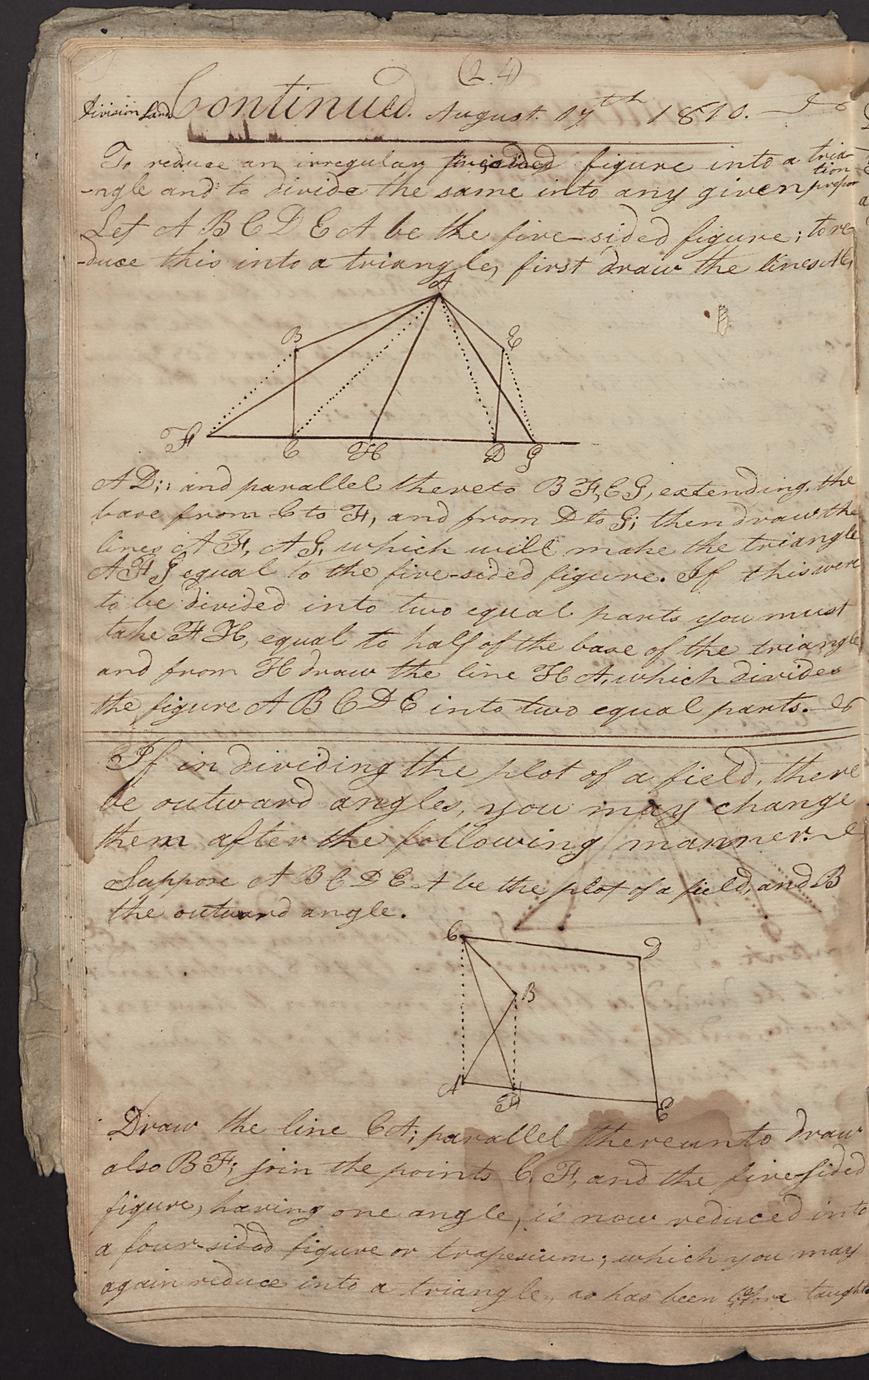 (24)
Division Land Continued. August. 17th 1810.
To reduce an irregular fivesided figure into a tria-
-ngle and to divide the same into any given proportion
Let A B C D E A be the five-sided figure; to re
-duce this into a triangle, first draw the lines AC,
A
B
E
F
C
H
D
G
AD; and parallel thereto BF, EG, extending the
base from C to F, and from D to G; then draw the
lines AF, AG, which will make the triangle
AFG equal to the five-sided figure. If this were
to be divided into two equal parts you must
take FH, equal to half of the base of the triangle
and from H draw the line HA, which divides
the figure A B C D E into two equal parts. &
If in dividing the plot of a field, there
be outward angles, you may change
them after the following manner.
Suppose A B C D E A be the plot of a field, and B
the outward angle.
C
D
B
A
F
E
Draw the line CA; parallel thereunto draw
also BF; join the points C, F, and the five-sided
figure, having one angle, is now reduced into
a four-sided figure or trapesium; which you may
again reduce into a triangle, as has been before taught